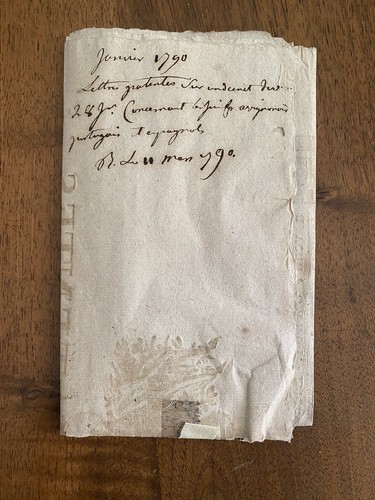 Janvier 1790
Lettres patentes Sur un decret du
28 Jr. Concernant les Juifs avignonois
portugais Espagnols
R. Le 11 mars 1790.